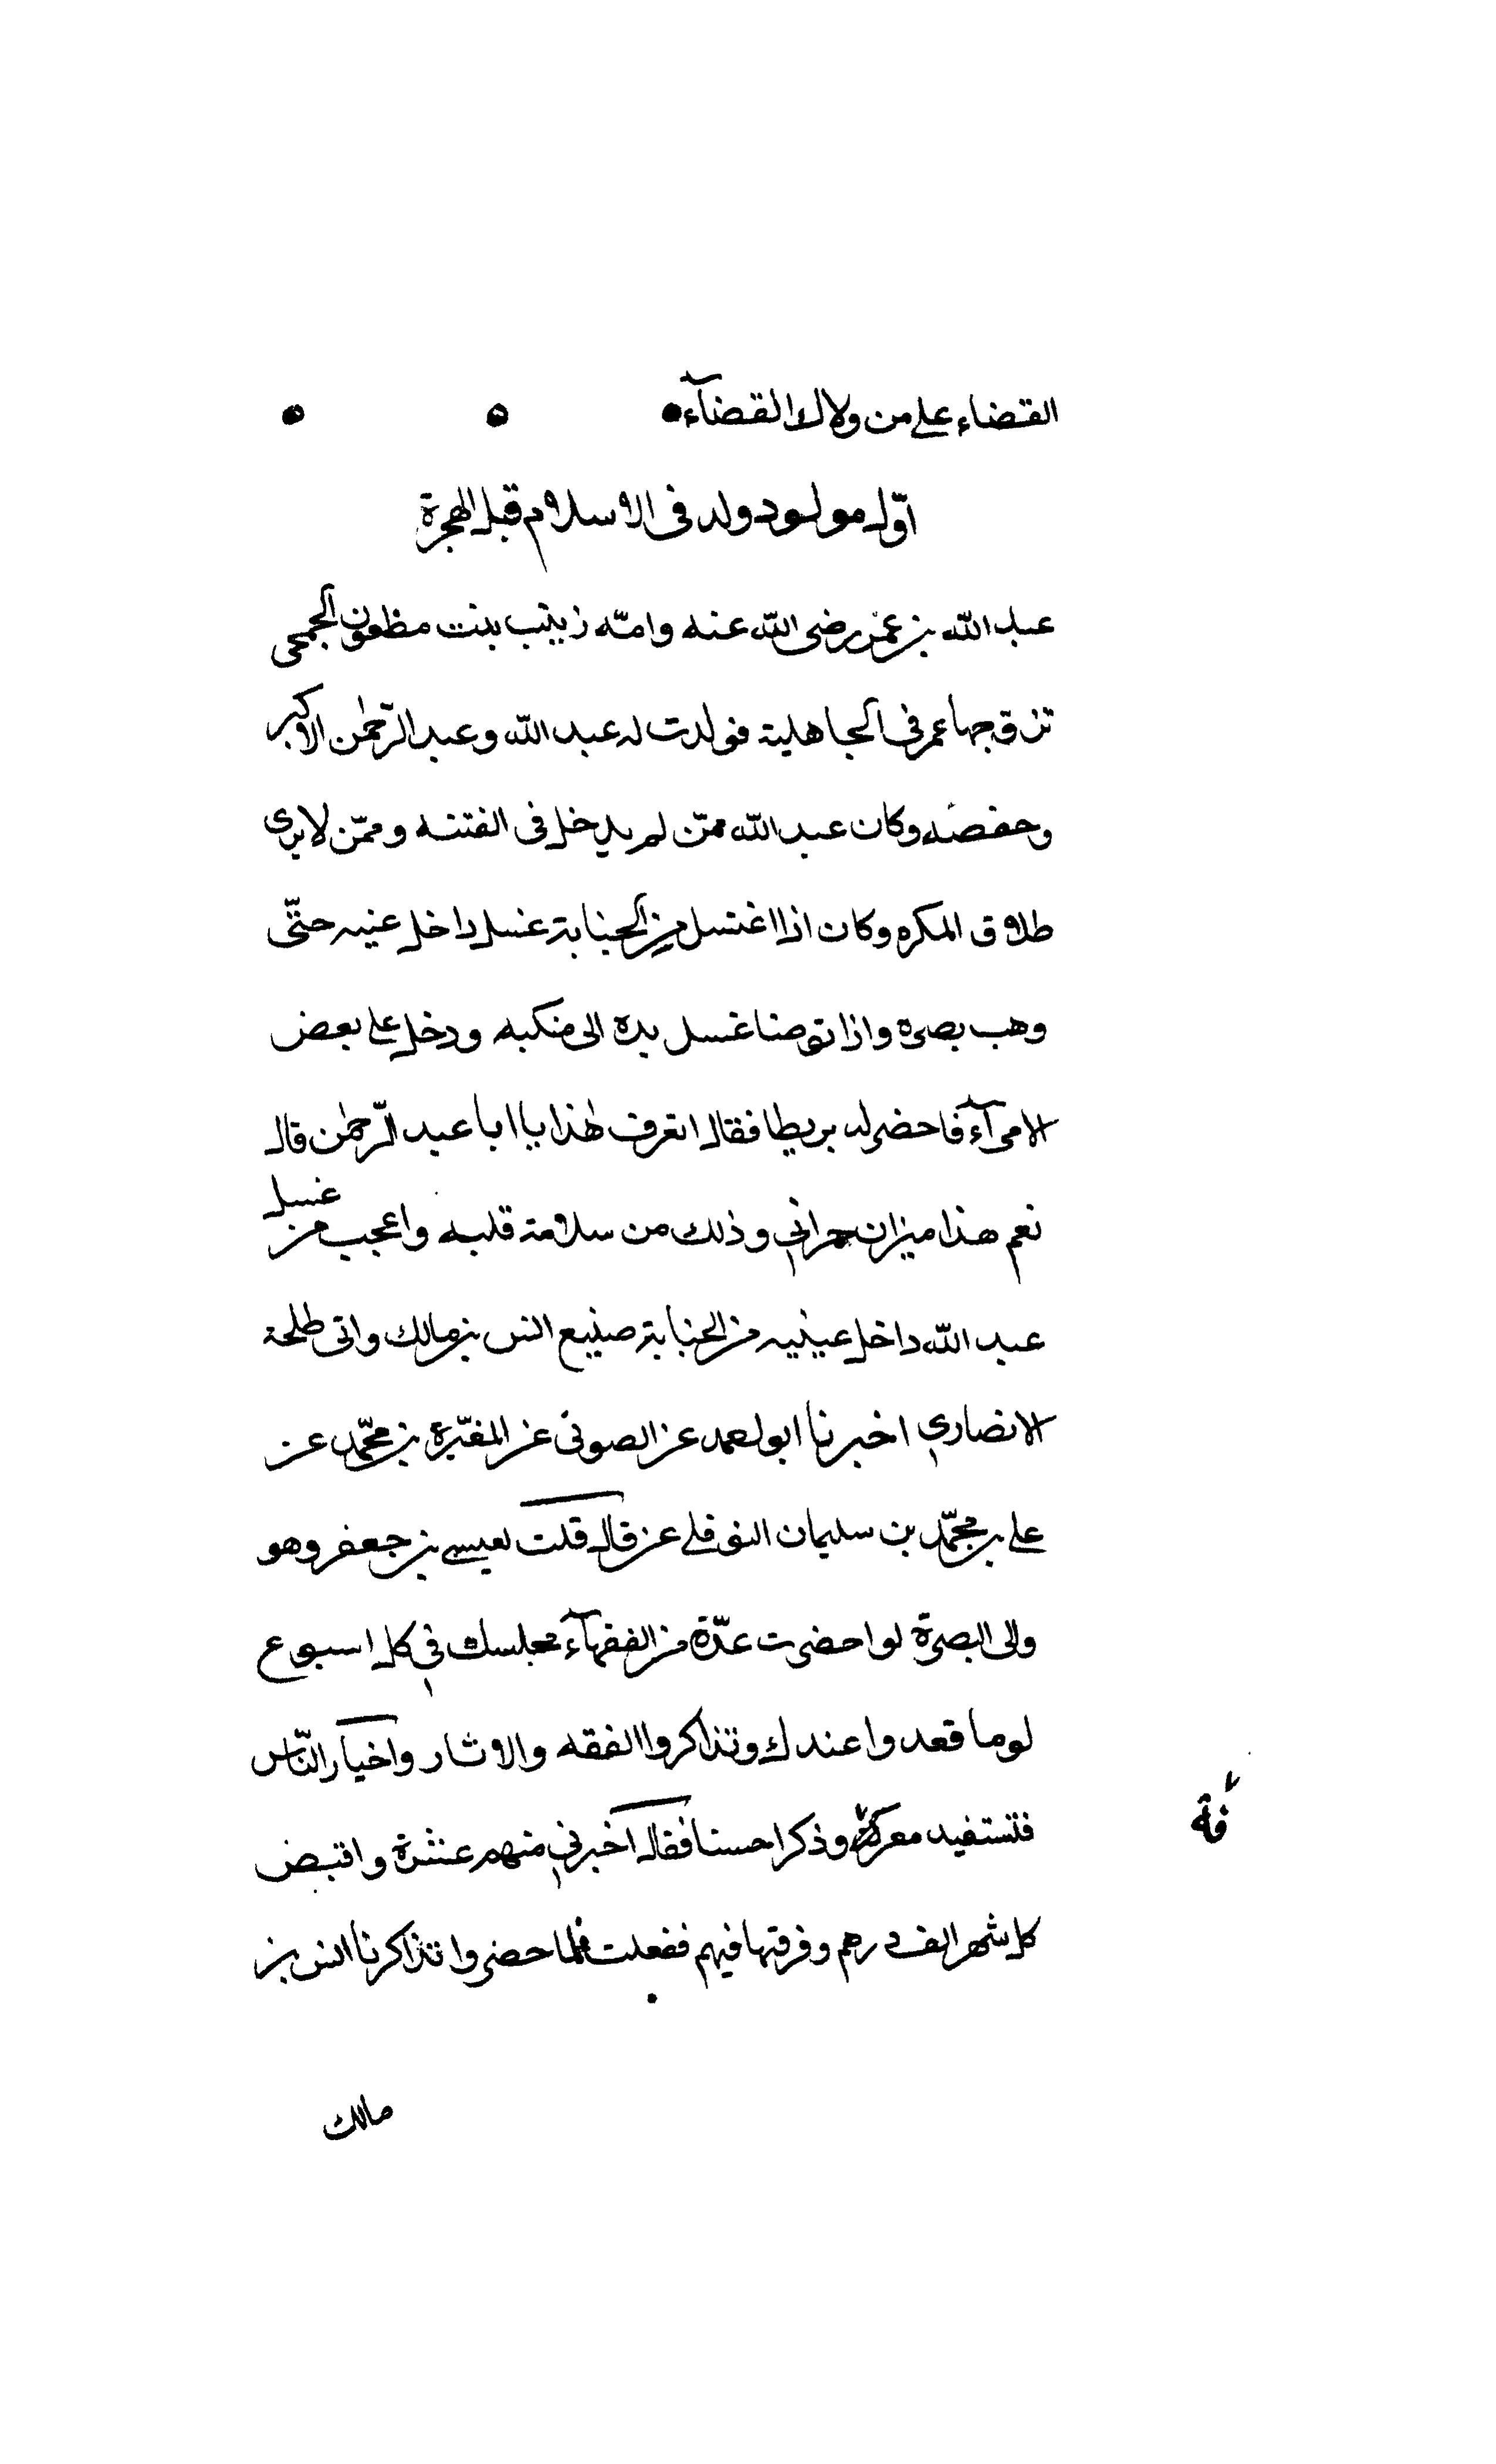 القضاء على من ولاك القضآء
اوّل مولود ولد فى الاسلام قبل الهجرة
عبد الله بن عمر رضى الله عنه وامّه زينب بنت مظعون الجمحى
تزوجها عمر في الجاهلية فولدت له عبد الله وعبد الرّحمٰن الاكبر
وحفصه وكان عبد الله ممّن لم يدخل فى الفتنه وممّن لا يرى
طلاق المكره وكان اذا اغتسل من الجنابة غسل داخل عنيه حتّى
وهب بصره واذا توضا غسل يده الى منكبه ودخل على بعض
الامرآء فاحضر له بربطا فقال اتعرف هٰذا يا ابا عبد الرّحمٰن قال
نعم هذا ميزان حراني وذلك من سلامة قلبه واعجب من غسل
عبد الله داخل عينيه من الجنابة صنيع انس بن مالك واتى طلحة
الانصاري اخبرنا ابو احمد عن الصوفى عن المغيّرة بن محمّد عن
على بن محمّد بن سليمان النوفلي عن قال قلت لعيسى بن جعفر وهو
والى البصرة لو احضرت عدّة من الفقهآء مجلسك في كل اسبوع
لوما قعدوا عندك وتذاكروا الفقه والاثار واخبار النّاس
فتستفيد معرفة وذكرا حسنا فقال اخبرني منهم عشرة واقبض
كل شهر الف درهم وفرقتها فيهم ففعلت فلما حضروا تذاكرنا انس بن
فة
مالك